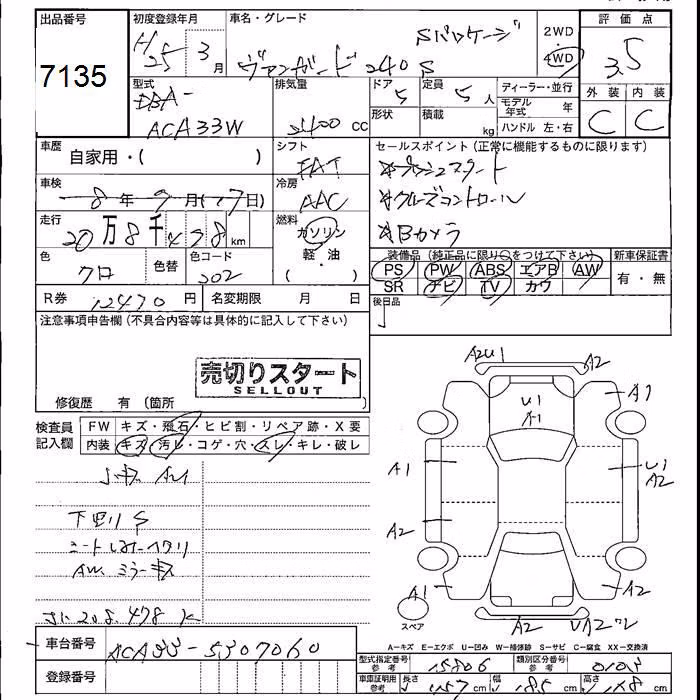 出品番号 初度登録年月 車名・グレード 評価点
7135 H25年3月 ヴァンガード 240S Sパッケージ 2WD 4WD 3.5
型式 DBA-ACA33W 排気量 2400 cc ドア 5 形状 定員 5人 積載 kg
ディーラー・並行 モデル年式 年 ハンドル 左・右
外装 内装
C C
車歴 自家用・( ) シフト FAT
セールスポイント(正常に機能するものに限ります)
*プッシュスタート
*クルーズコントロール
*Bカメラ
車検 8年9月(17日) 冷房 AAC
走行 20万8千478km 燃料 ガソリン・軽油 ( )
色 クロ 色替 色コード 202
装備品(純正品に限り○をつけて下さい) 新車保証書
PS PW ABS エアB AW 有・無
SR ナビ TV カワ
R券 12470円 名変期限 月 日 後日品
注意事項申告欄(不具合内容等は具体的に記入して下さい)
売切りスタート
SELLOUT
修復歴 有(箇所
検査員記入欄 FW キズ・飛石・ヒビ割・リペア跡・X要
内装 キズ・汚レ・コゲ・穴・スレ・キレ・破レ
下回りS
AW ミラーキズ
208,478 K
A2U1 A2
U1
A1
A1
A1
U1
A2
A2
A1
A2
A2 UA2
スペア
A-キズ E-エクボ U-凹み W-補修跡 S-サビ C-腐食 XX-交換済
車台番号 ACA33-5307060
登録番号
型式指定番号 参考 15806 類別区分番号 参考 0103
車庫証明用 参考 長さ 457cm 幅 185cm 高さ 168cm